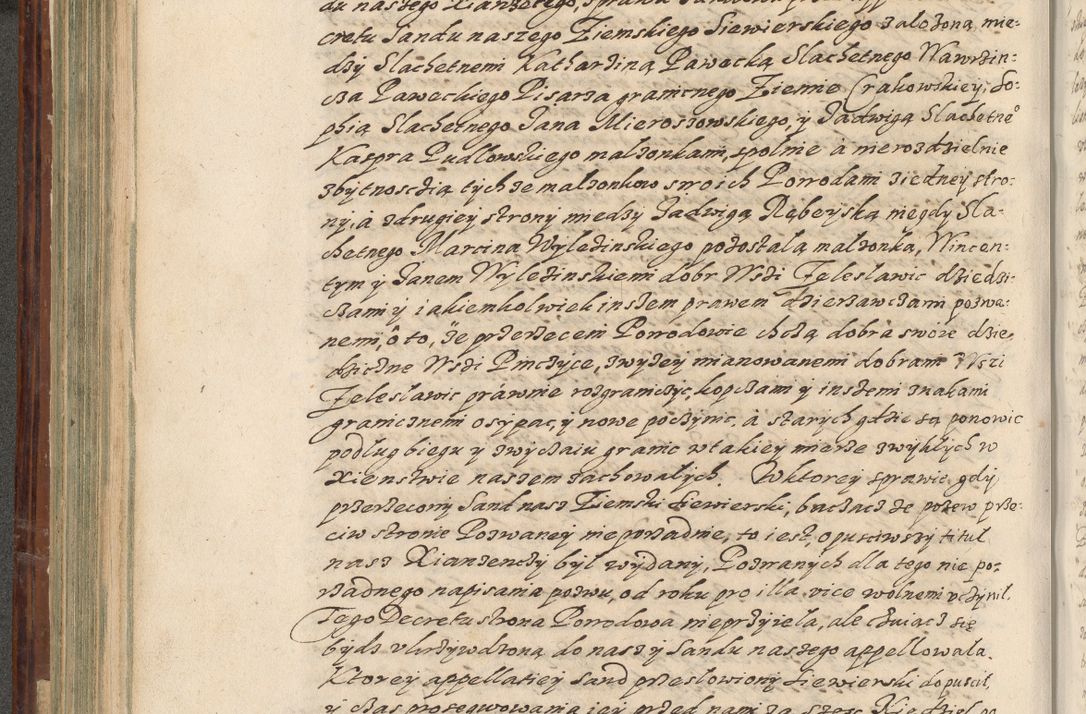 du naszego Xianzęcego, sprawa
cretu Sandu naszego Ziemskiego Siewierskiego załozona mie:
dzy Slachetnemi Katharziną Pawęcką Slachetnego Wawrzin:
cza Paweckiego Pisarza gramcznego Ziemie Crakowskiey, So:
phią Slachetnego Jana Mieroszowskiego, y Jadwigą Slachetneº
Kaspra Pudlowskiego malzonkami, spolnie a nierozdzielnie
zbytnoscdią tych ze malzonkow swoich Powodami ziedney stro:
ny, a zdrugiey strony miedzy Jadwigą Rębeyską niegdy Sla:
chetnego Marcina Wyledzinskiego pozostałą malzonką, Wincen:
tym y Janem Wyledzinskiemi dobr Wsdi Zelesławic dziedzi:
czami y iakiemkolwiek inszem prawem dzierzawczami pozwa:
nemi, o to, ze przerzeceni Powodowie chczą dobra swoie dzie,
dziczne Wsdi Pinczyce, zwyzey mianowanemi dobrami Wsci
Zelesławic prawnie rozgraniczyc, kopczami y inszemi znakami
granicznemi osypac, y nowe poczynic, a starych gdzie są ponowic
podług biegu y zwyczaiu granic wtakiey mierze zwykłych w
Xienstwie naszem zachowałych. Wktorey sprawie gdy
przerzecony Sand nasz Ziemski Siewierski, baczacz ze pozew prze:
ciw stronie Pozwaney nieporzadnie, to iest, opusciwszy titul
nasz Xianzenczy był wydany, Pozwanych dla tego nie po:
rzadnego napisania pozwu, od roku pro illa vice wolnemi vczynil.
Tego Decretu strona Powodowa nieprzyieła, ale czuiacz się
bydz vkrzywdzoną do nasz y Sandu naszego appellowała.
Ktorey appellatiey Sand przesłowiony Siewierski dopuscił,
y czas prosequowania iey przed nami za szesc Niedziel